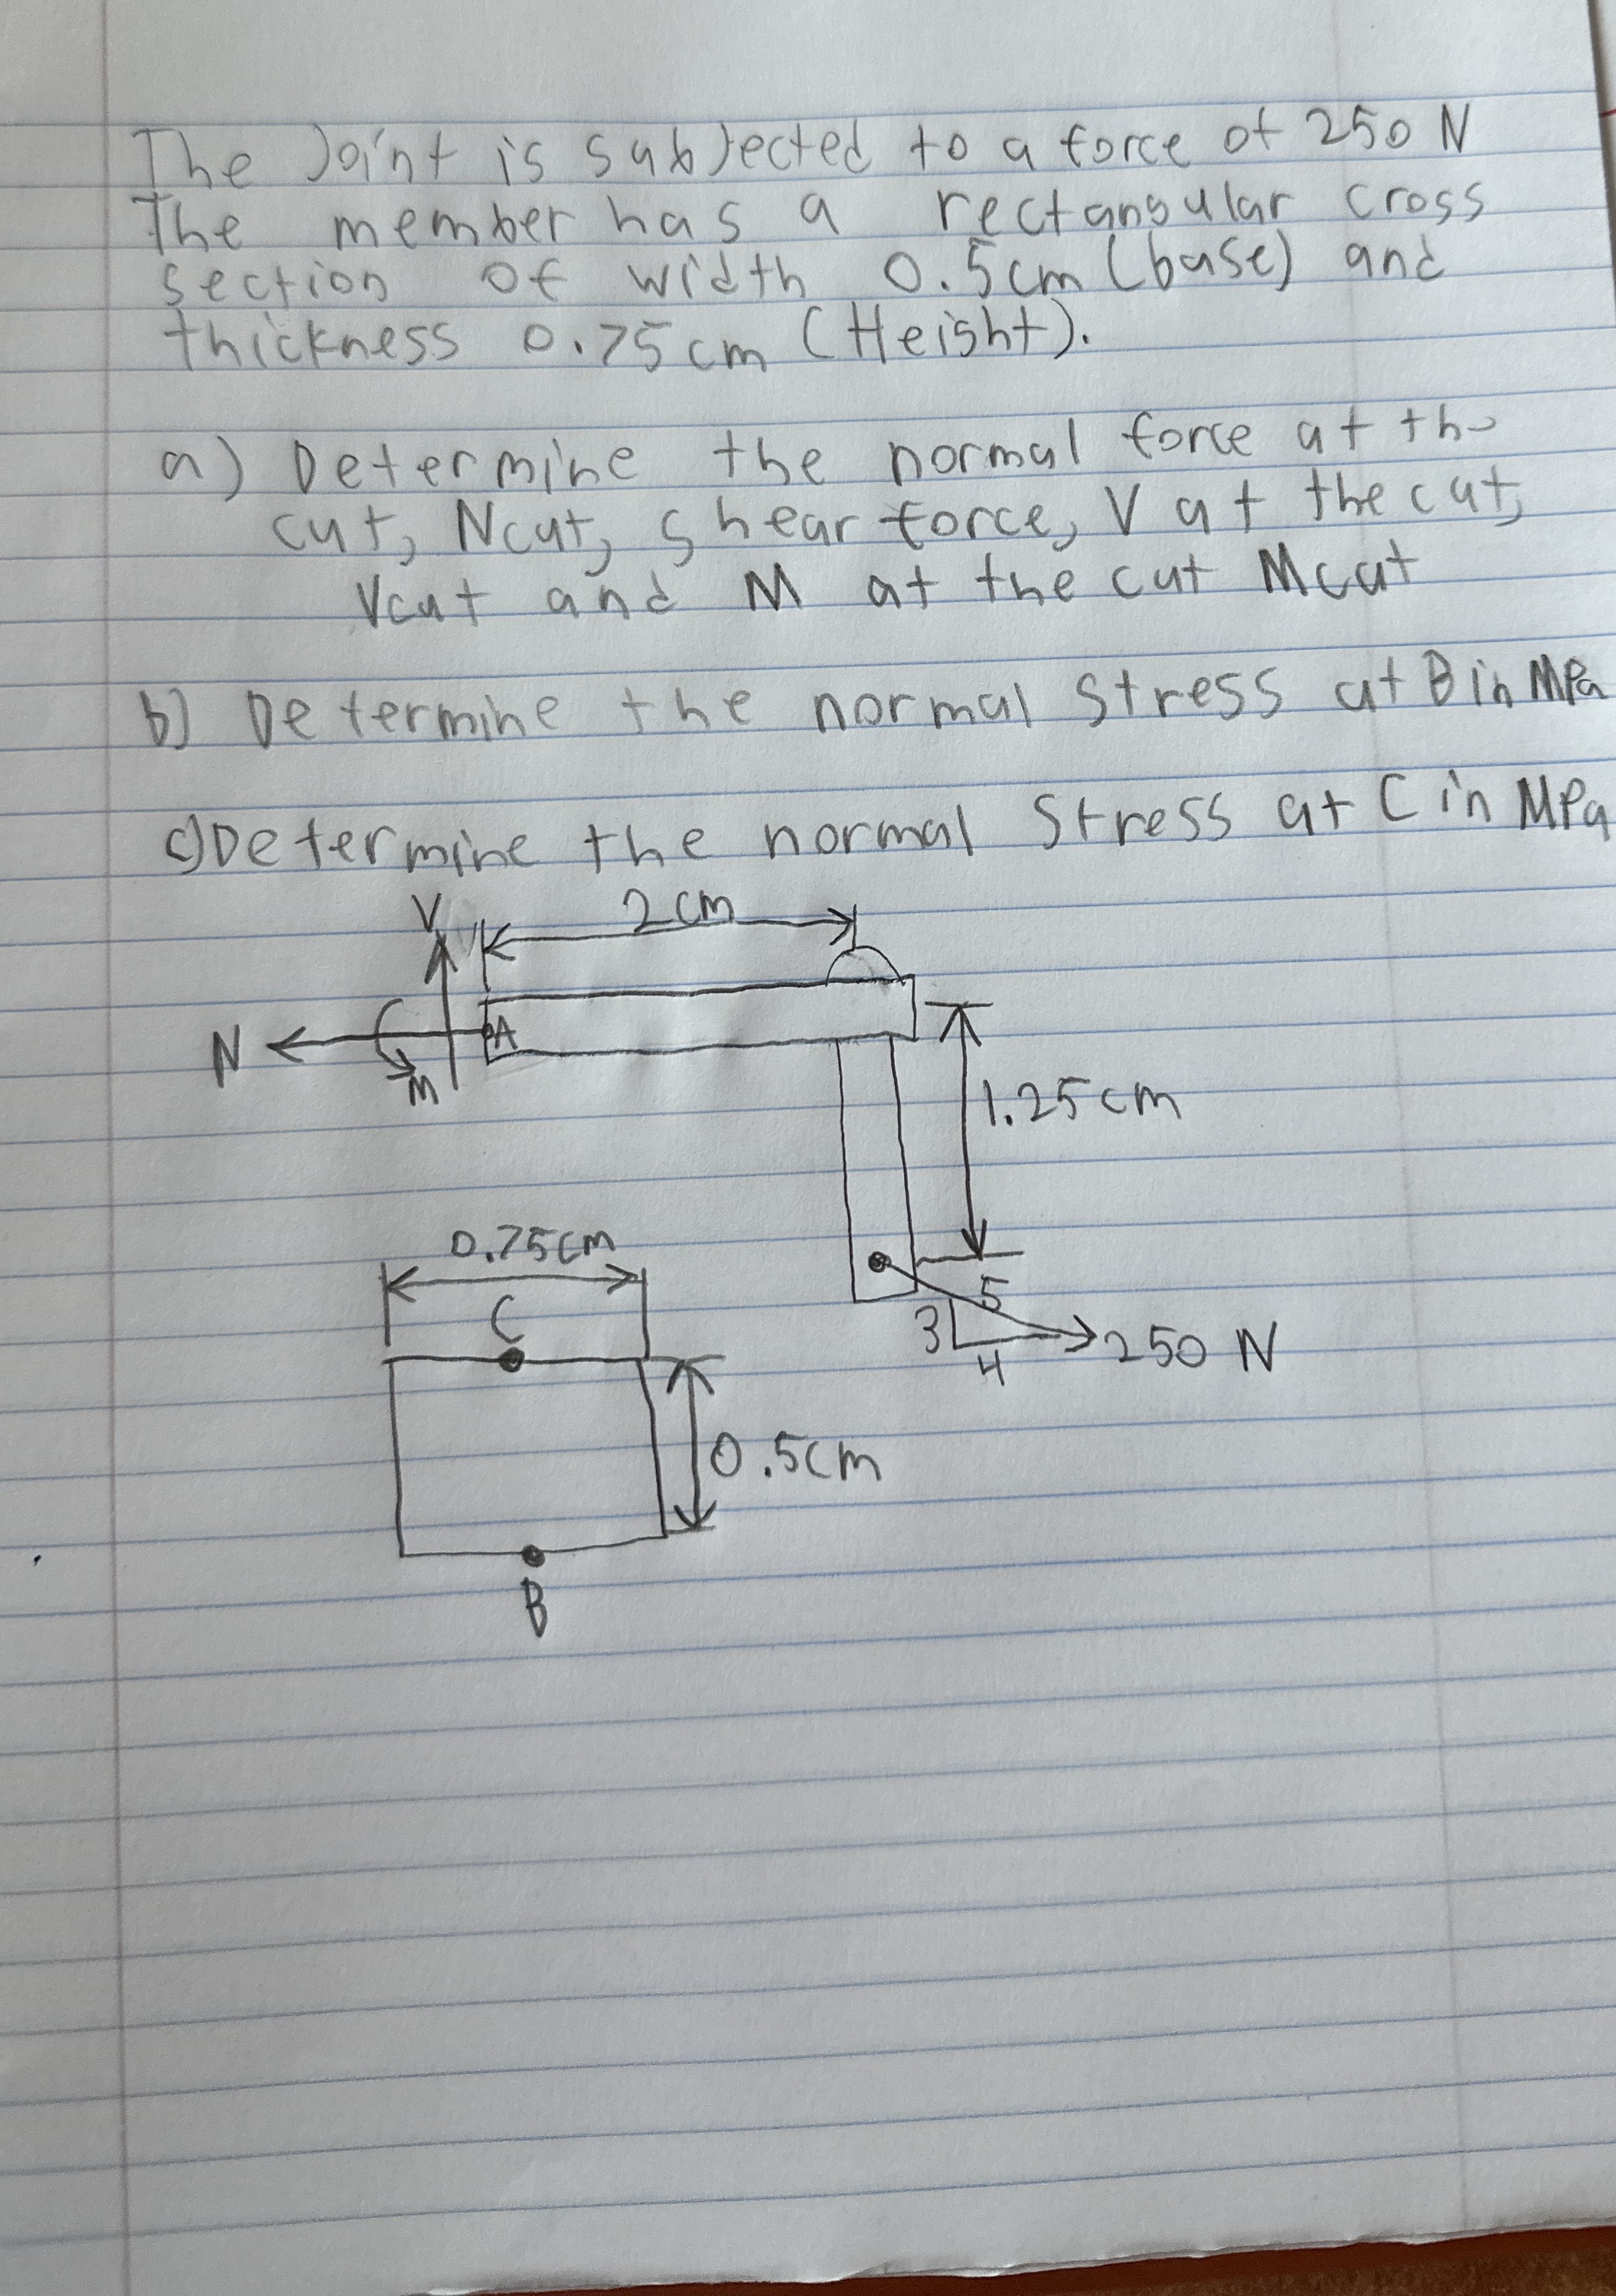 The Joint is subjected to a force of 250 N
The member has a rectangular cross
section of width 0.5cm (base) and
thickness 0.75cm (Height).
a) Determine the normal force at the
cut, Ncut, shear force, V at the cut,
Vcut and M at the cut Mcut
b) Determine the normal stress at B in MPa
c) Determine the normal stress at C in MPa
V
2 cm
N
A
M
1.25cm
0.75cm
C
5
3
4
250 N
0.5cm
B